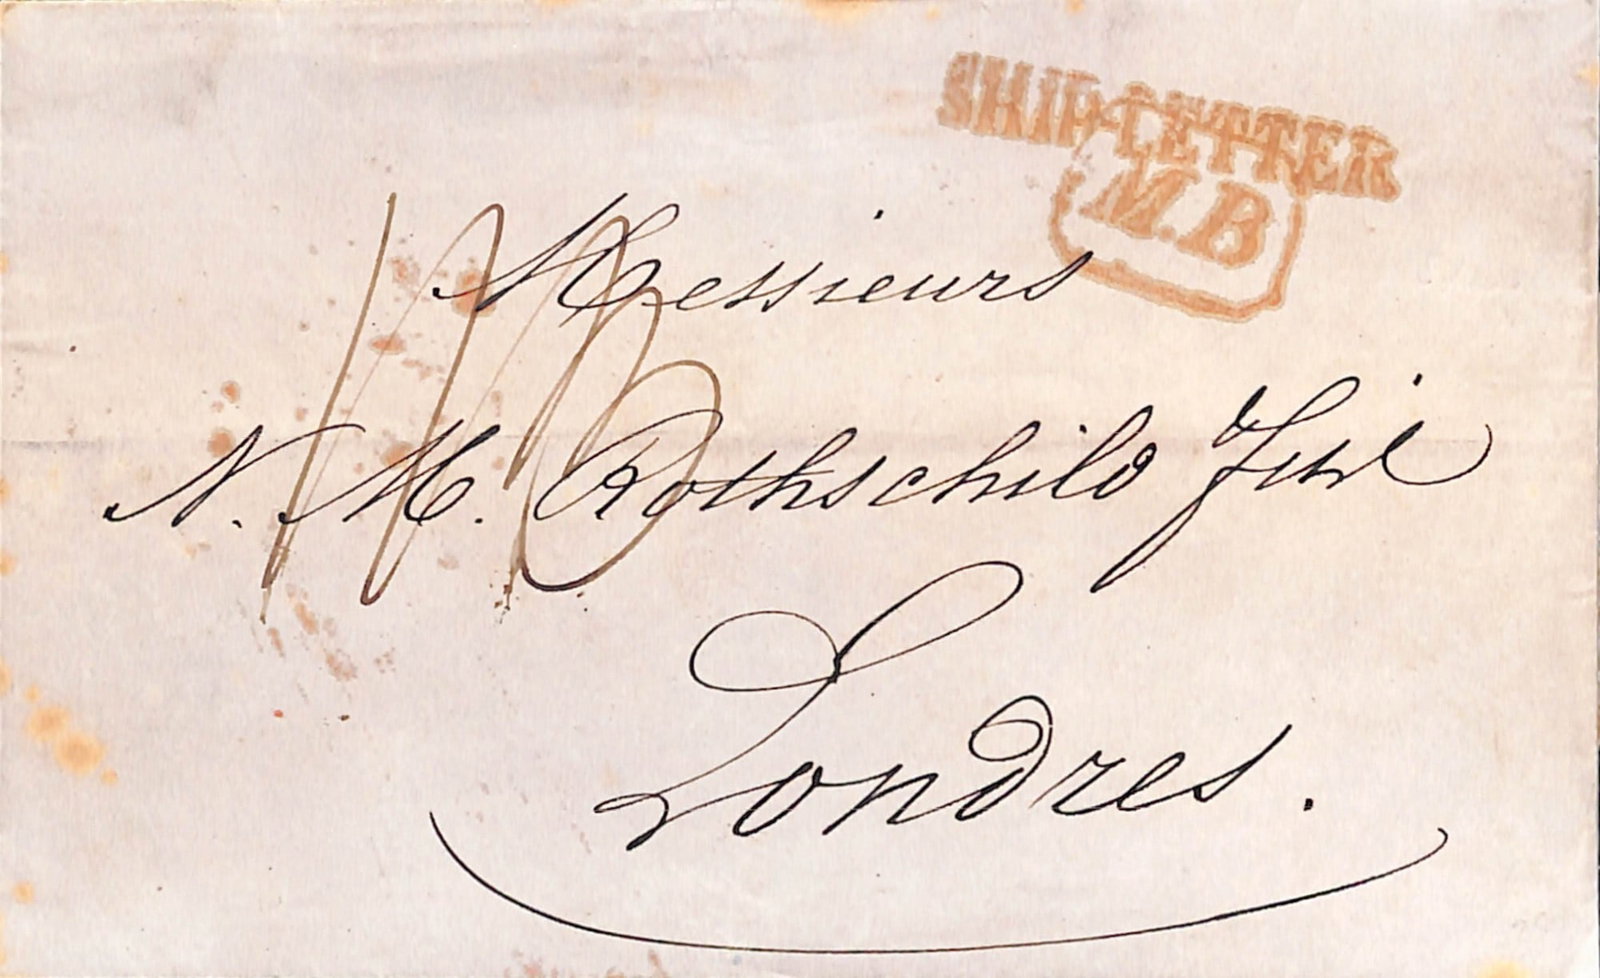 SHIP-LETTER
M.B
Messieurs
N. M. Rothschild
Londres.